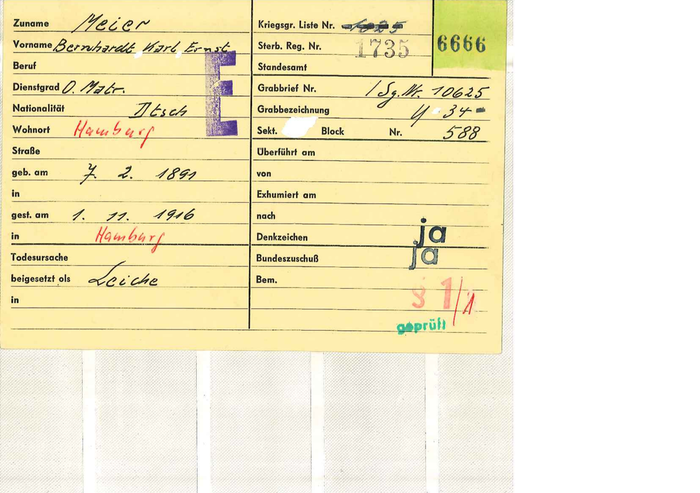 Zuname Meier
Vorname Bernhardt Karl Ernst
Beruf
Dienstgrad O. Matr.
Nationalität Dtsch
Wohnort Hamburg
Straße
geb. am 7. 2. 1891
in
gest. am 1. 11. 1916
in Hamburg
Todesursache
beigesetzt als Leiche
in
E
Kriegsgr. Liste Nr.
Sterb. Reg. Nr. 1735
6666
Standesamt
Grabbrief Nr. 10625
Grabbezeichnung 34-
Sekt. Block Nr. 588
Überführt am
von
Exhumiert am
nach
Denkzeichen ja
Bundeszuschuß ja
Bem.
§ 1/1
geprüft